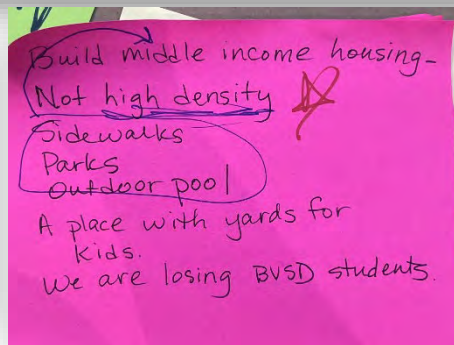 Build middle income housing-
Not high density
Sidewalks
Parks
Outdoor pool
A place with yards for
kids.
We are losing BVSD students.